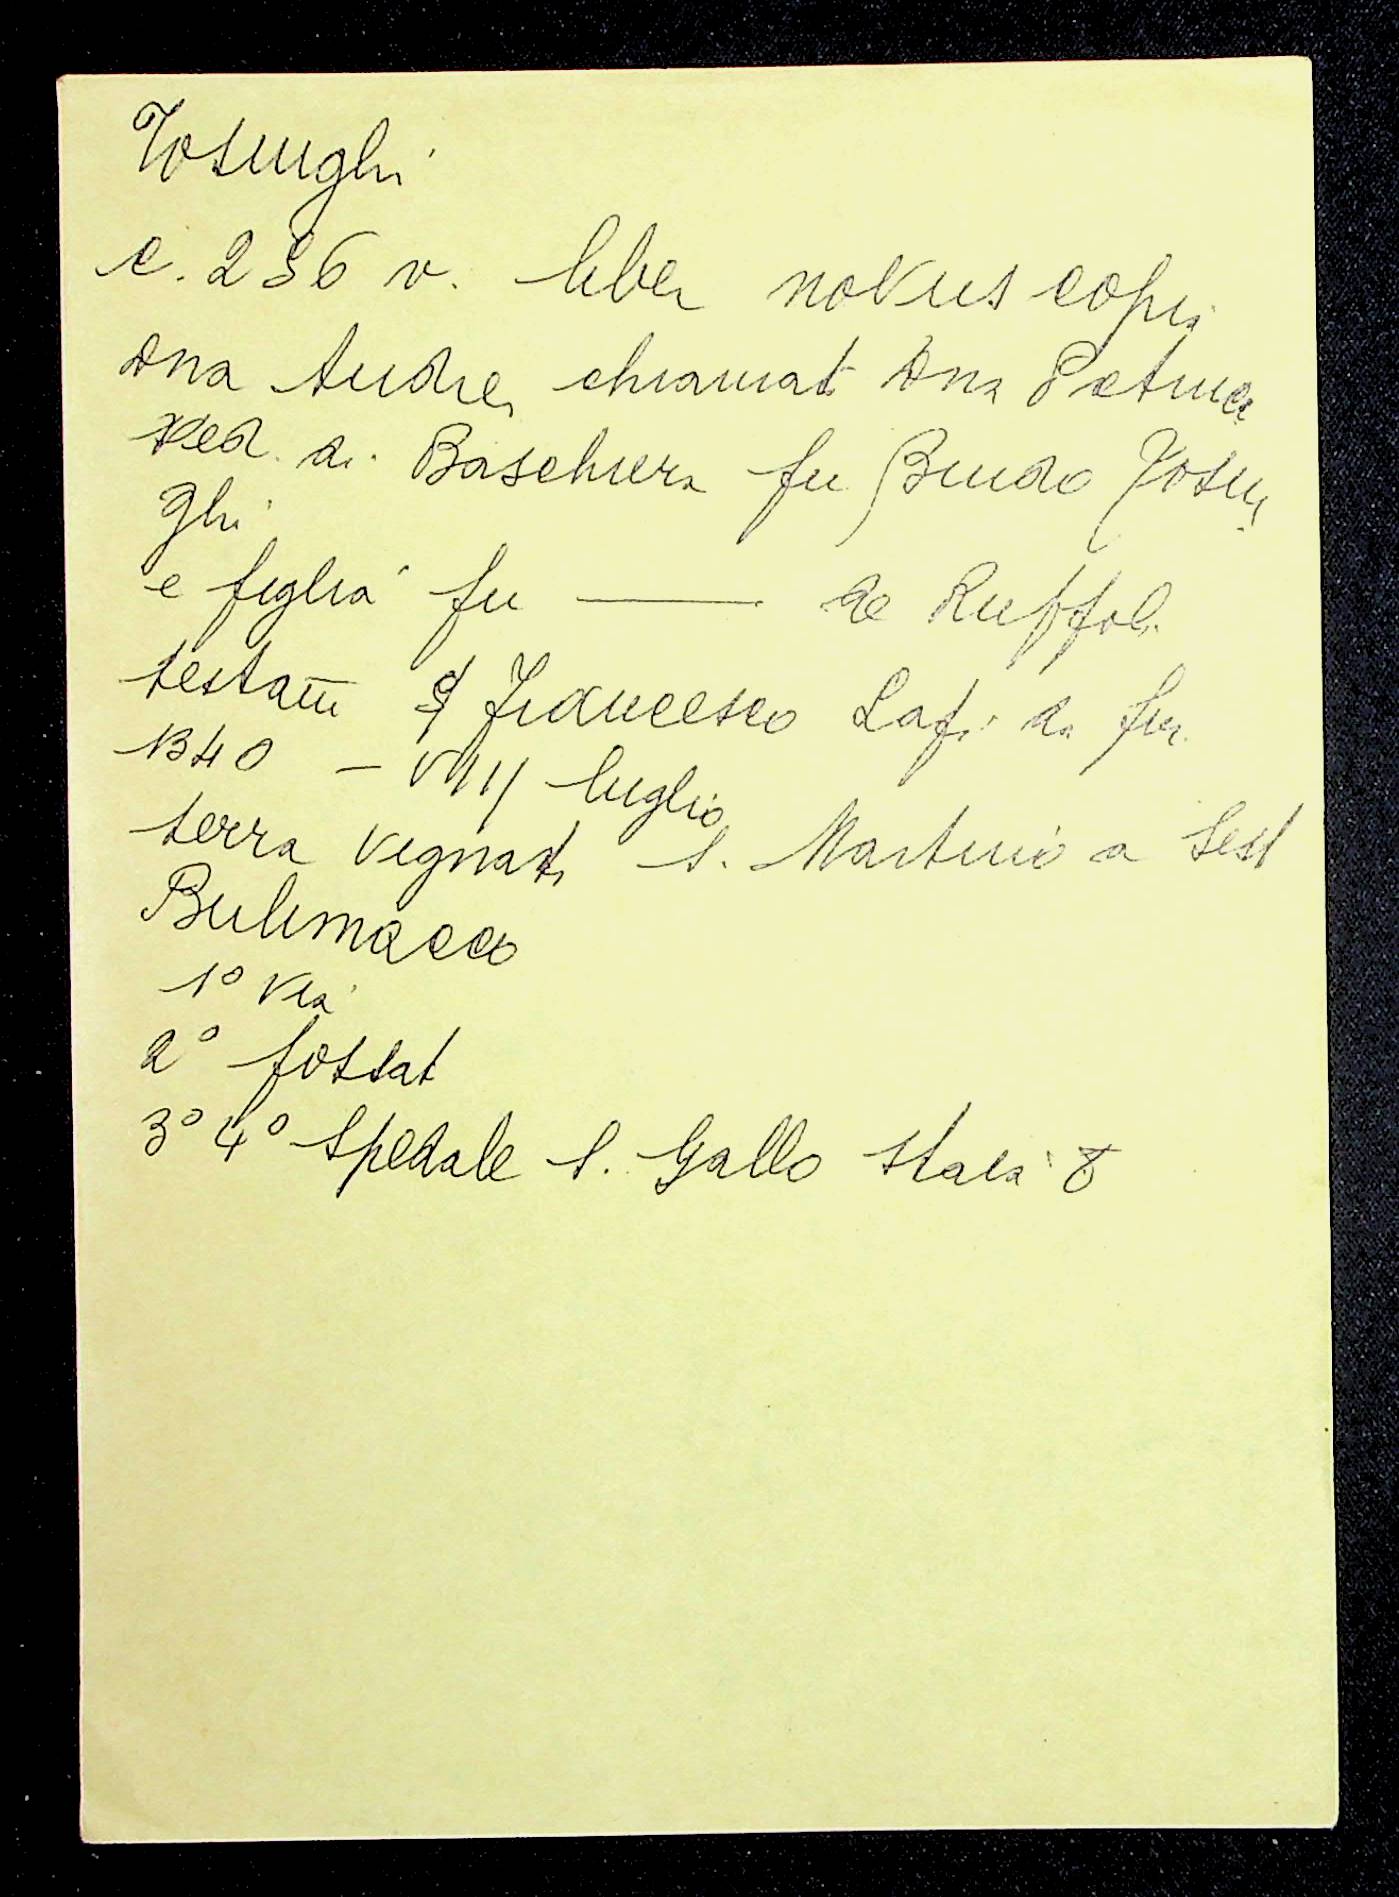 Tosinghi
c. 236 v. liber novus copia
dna Andrea chiamat dna Petruca
ved. di Baschiera fu Bindo Tosin
ghi
e figlia fu —— de Ruffoli
testam Francesco Lapi da
1340 – VIII luglio
terra vignat S. Martino a Sest
Bulimacco
1° via
2° fossat
3° 4° Spedale S. Gallo staia 8